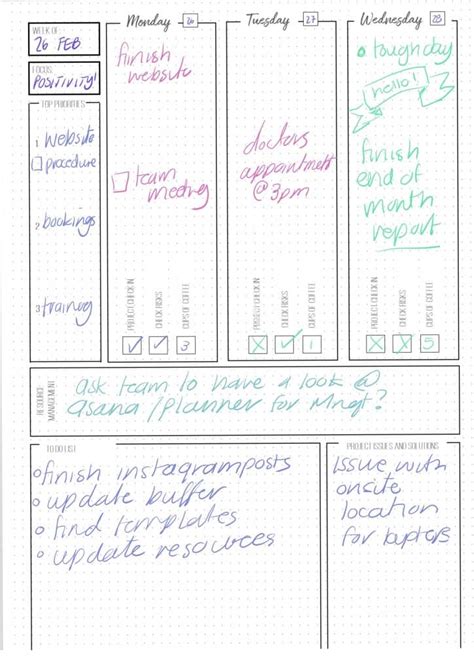 WEEK OF:
26 FEB
FOCUS:
POSITIVITY!
TOP PRIORITIES
1 website
procedure
2 bookings
3 training
Monday 26
finish
website
team
meeting
PROJECT CHECK IN
CHECK RISKS
CUPS OF COFFEE
3
Tuesday 27
doctors
appointment
@3pm
PROJECT CHECK IN
CHECK RISKS
CUPS OF COFFEE
1
Wednesday 28
tough day
hello!
finish
end of
month
report
PROJECT CHECK IN
CHECK RISKS
CUPS OF COFFEE
5
RESOURCE
MANAGEMENT
ask team to have a look @
asana/planner for Mngt?
TO DO LIST
finish instagram posts
update buffer
find templates
update resources
PROJECT ISSUES AND SOLUTIONS
Issue with
onsite
location
for